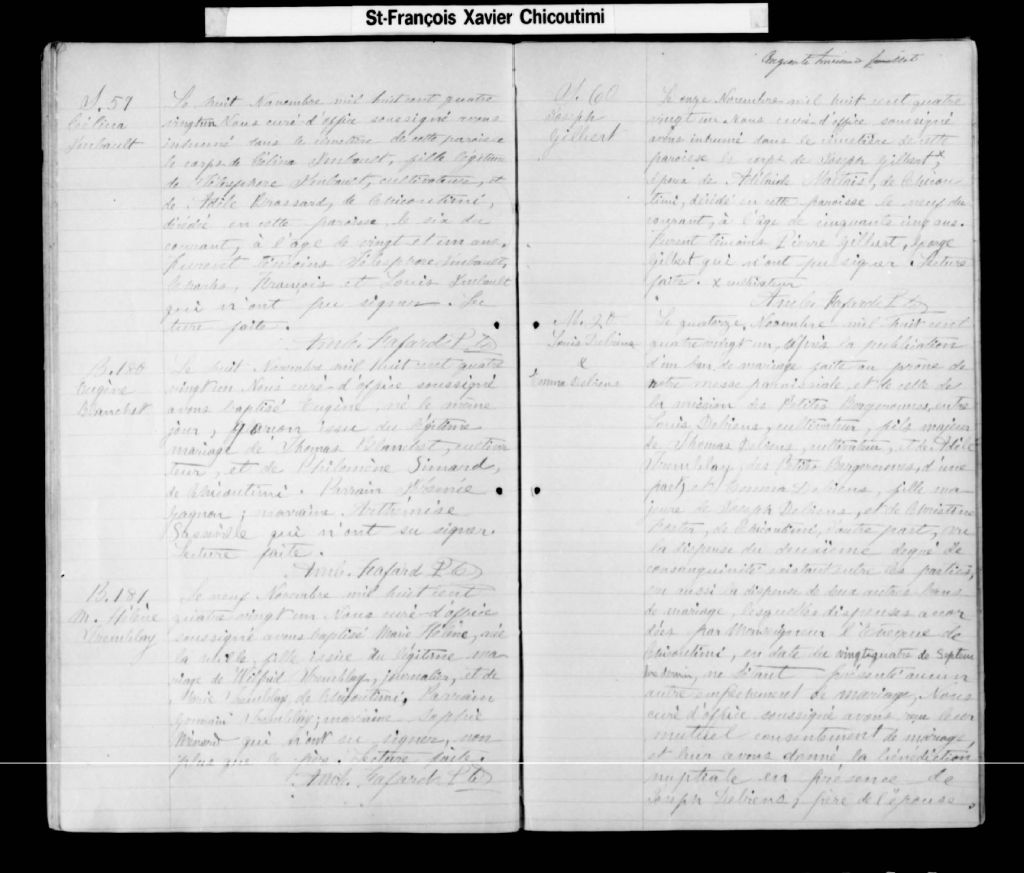 St-François Xavier Chicoutimi
S. 59
Célina
Imbault
Le huit Novembre mil huit cent quatre
vingt un Nous curé d'office soussigné avons
inhumé dans le cimetière de cette paroisse
le corps de Célina Imbault, fille légitime
de Télesphore Imbault, cultivateur, et
de Adèle Brossard, de Chicoutimi,
décédée en cette paroisse le six du
courant, à l'âge de vingt et un ans.
Furent témoins Télesphore Imbault,
Charles, François et Louis Imbault
qui n'ont pu signer. Lec
ture faite.
Amb. Fafard Ptre
B. 180
Eugène
Blanchet
Le huit Novembre mil huit cent quatre
vingt un Nous curé d'office soussigné
avons baptisé Eugène, né le même
jour, garçon issu du légitime
mariage de Thomas Blanchet, cultiva
teur, et de Philomène Simard,
de Chicoutimi. Parrain
Gagnon; marraine Arthémise
qui n'ont su signer.
Lecture faite.
Amb. Fafard Ptre
B. 181
M. Hélène
Tremblay
Le neuf Novembre mil huit cent
quatre vingt un Nous curé d'office
soussigné avons baptisé Marie Hélène, née
la veille, fille issue du légitime ma
riage de Wilfrid Tremblay, journalier, et de
Marie Tremblay, de Chicoutimi. Parrain
Germain Tremblay; marraine Sophie
Ménard qui n'ont su signer, non
plus que le père. Lecture faite.
Amb. Fafard Ptre
Cinquante feuillet
S. 60
Joseph
Gilbert
Le onze Novembre mil huit cent quatre
vingt un nous curé d'office soussigné
avons inhumé dans le cimetière de cette
paroisse le corps de Joseph Gilbert, x
époux de Adélaïde Maltais, de Chicou
timi, décédé en cette paroisse le neuf du
courant, à l'âge de cinquante cinq ans.
Furent témoins Pierre Gilbert, George
Gilbert qui n'ont pu signer. Lecture
faite. x cultivateur
Amb. Fafard Ptre
M. 20
Louis Debiens
&
Emma Debiens
Le quatorze Novembre mil huit cent
quatre vingt un, après la publication
d'un ban de mariage faite au prône de
notre messe paroissiale, et de celle de
la mission des Petites Bergeronnes, entre
Louis Debiens, cultivateur, fils majeur
de Thomas Debiens, cultivateur, et de Adèle
Tremblay, des Petites Bergeronnes, d'une
part, et Emma Debiens, fille ma
jeure de Joseph Debiens, et de Christine
de Chicoutimi, d'autre part, vu
la dispense du deuxième degré de
consanguinité existant entre les parties,
vu aussi la dispense de deux autres bans
de mariage, lesquelles dispenses accor
dées par Monseigneur l'Evêque de
Chicoutimi, en date du vingt quatre de Septem
bre dernier, ne s'étant présenté aucun
autre empêchement de mariage, Nous
curé d'office soussigné avons reçu leur
mutuel consentement de mariage
et leur avons donné la bénédiction
nuptiale en présence de
Joseph Debiens, père de l'épouse